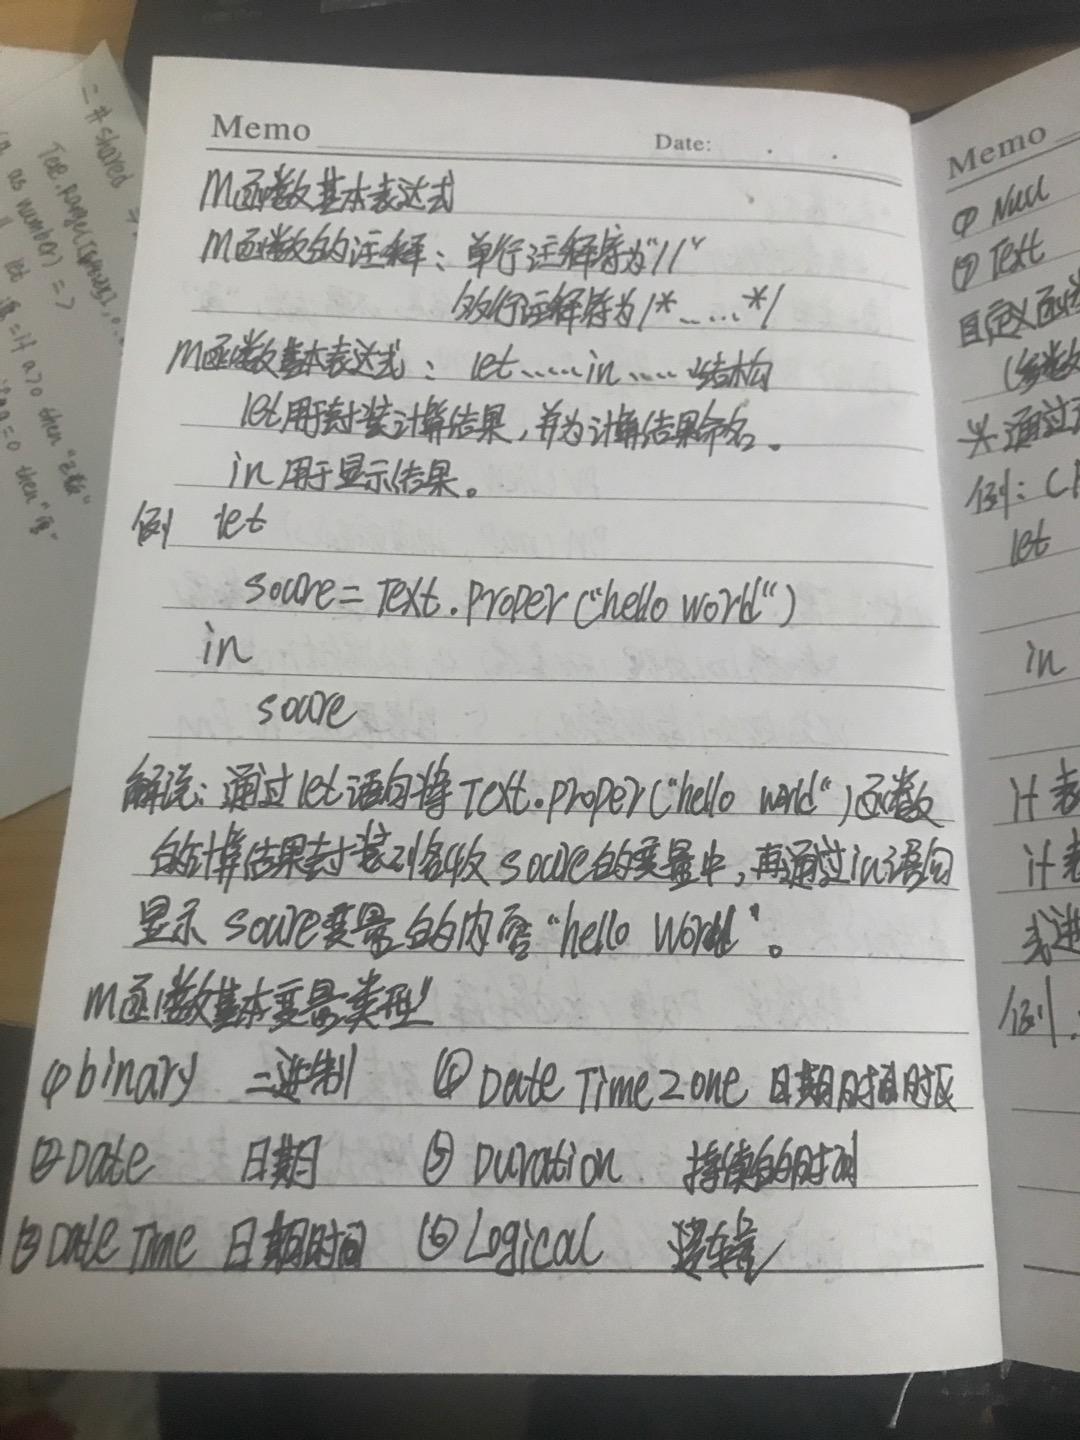 Memo
Date: . .
M函数基本表达式
M函数的注释：单行注释符为"//"
多行注释符为/*……*/
M函数基本表达式：let……in……结构
let用于封装计算结果，并为计算结果命名。
in用于显示结果。
例 let
soure=Text.Proper("hello world")
in
soure
解说：通过let语句将Text.Proper("hello world")函数
的计算结果封装到名收soure的变量中，再通过in语句
显示soure变量的的内容"hello World"。
M函数基本变量类型
①binary 二进制 ④DateTimeZone 日期时间时区
②Date 日期 ⑤Duration 持续的时间
③DateTime 日期时间 ⑥Logical 逻辑
Memo
⑦Null
⑨Text
自定义函数
(参数
通过
例：
let
in
if 表
if 表
式进
例：
=#shared
as number) =>
let
=if a>0 then "正数"
a=0 then "零"